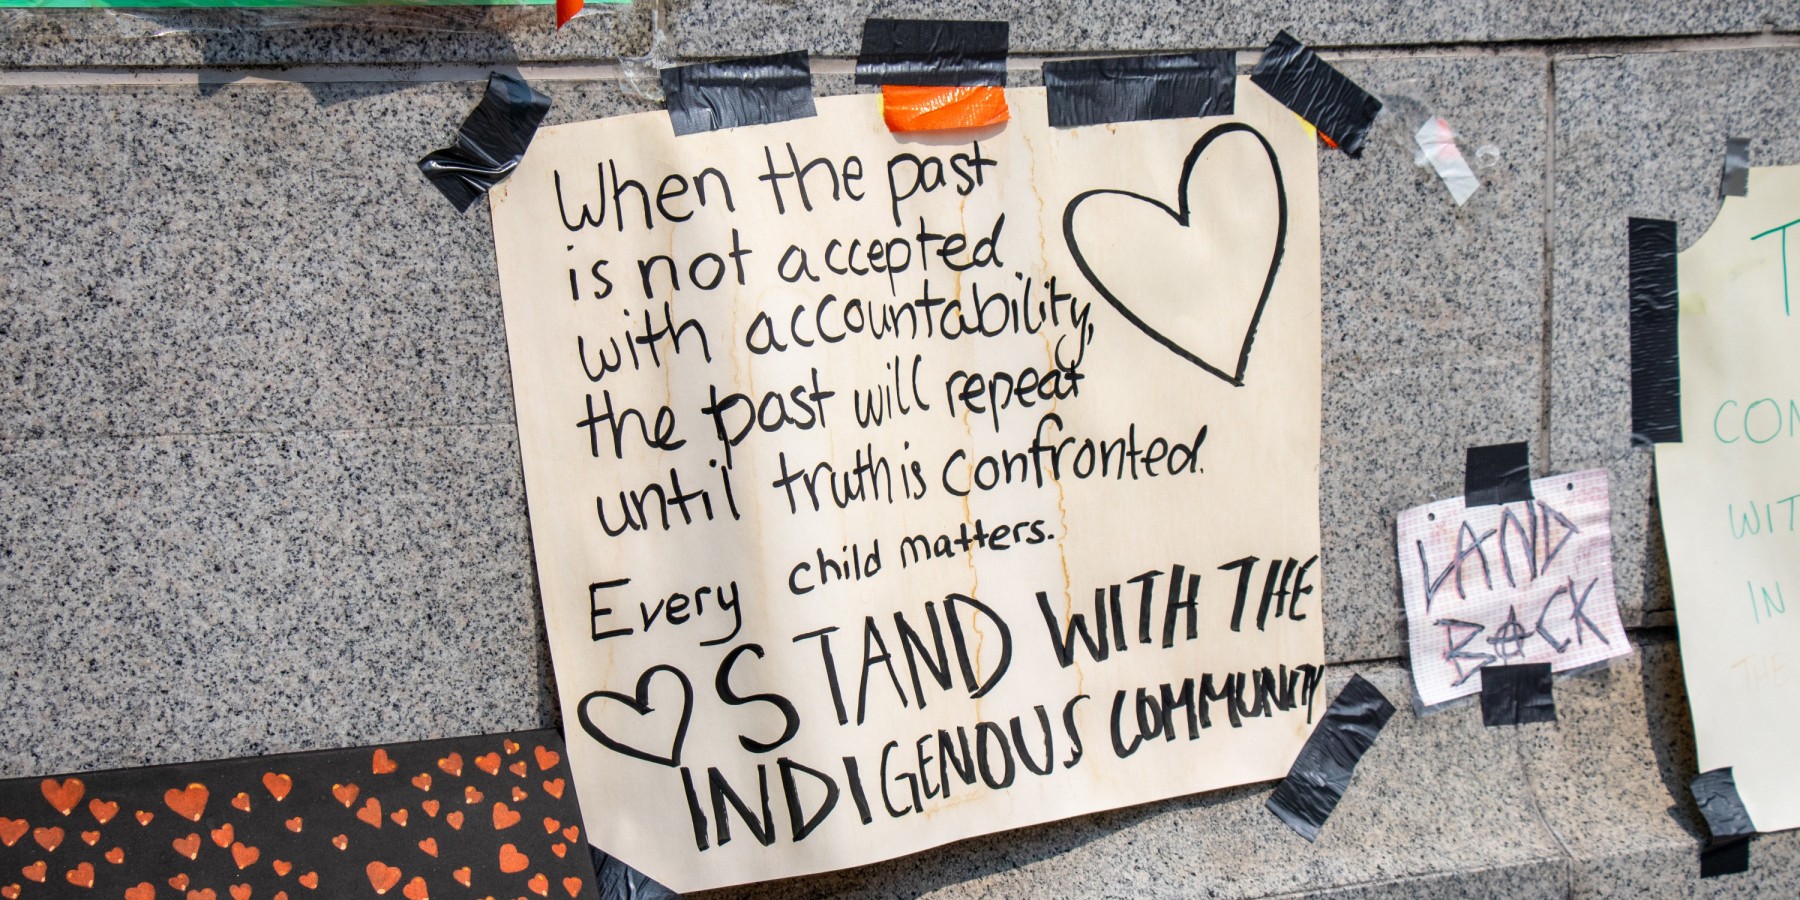 When the past
is not accepted
with accountability,
the past will repeat
until truth is confronted.
Every child matters.
STAND WITH THE
INDIGENOUS COMMUNITY
LAND
BACK
T
CON
WIT
IN
THE